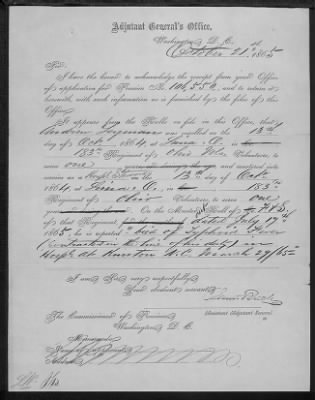 Adjutant General's Office,
Washington, D. C.
October 21st 186
Sir:
I have the honor to acknowledge the receipt from your Office
of application for Pension No. 106,550, and to return it
herewith, with such information as is furnished by the files of this
Office.
It appears from the Rolls on file in this Office, that
Andrew was enrolled on the 13th
day of Oct., 1864, at Lima, O., in
183d Regiment of Ohio Volunteers, to
serve one and mustered into
service as a on the 13th day of Oct.
1864, at Lima, O., in 183d
Regiment of Ohio Volunteers, to serve
one On the Muster Roll of F & S
of that Regiment dated July 17th
1865, he is reported "died of Typhoid Fever
(contracted in the line of his duty) in
Hosp. at N.C. March 29/65"
I am Sir, very respectfully,
Your obedient servant,
Samuel Breck
Assistant Adjutant General.
The Commissioner of Pensions,
Washington, D. C.